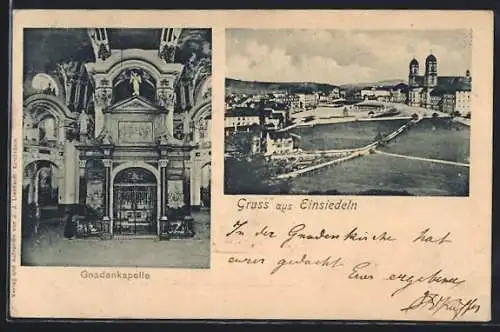 Gruss aus Einsiedeln
In der Gnadenkirche hat
eurer gedacht Euer ergebener
Gnadenkapelle